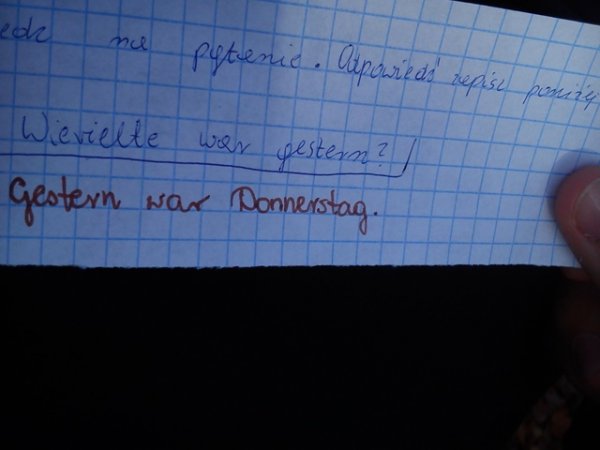 na pytanie. Odpowiedź napisz poniżej
Wievielte war gestern?
Gestern war Donnerstag.